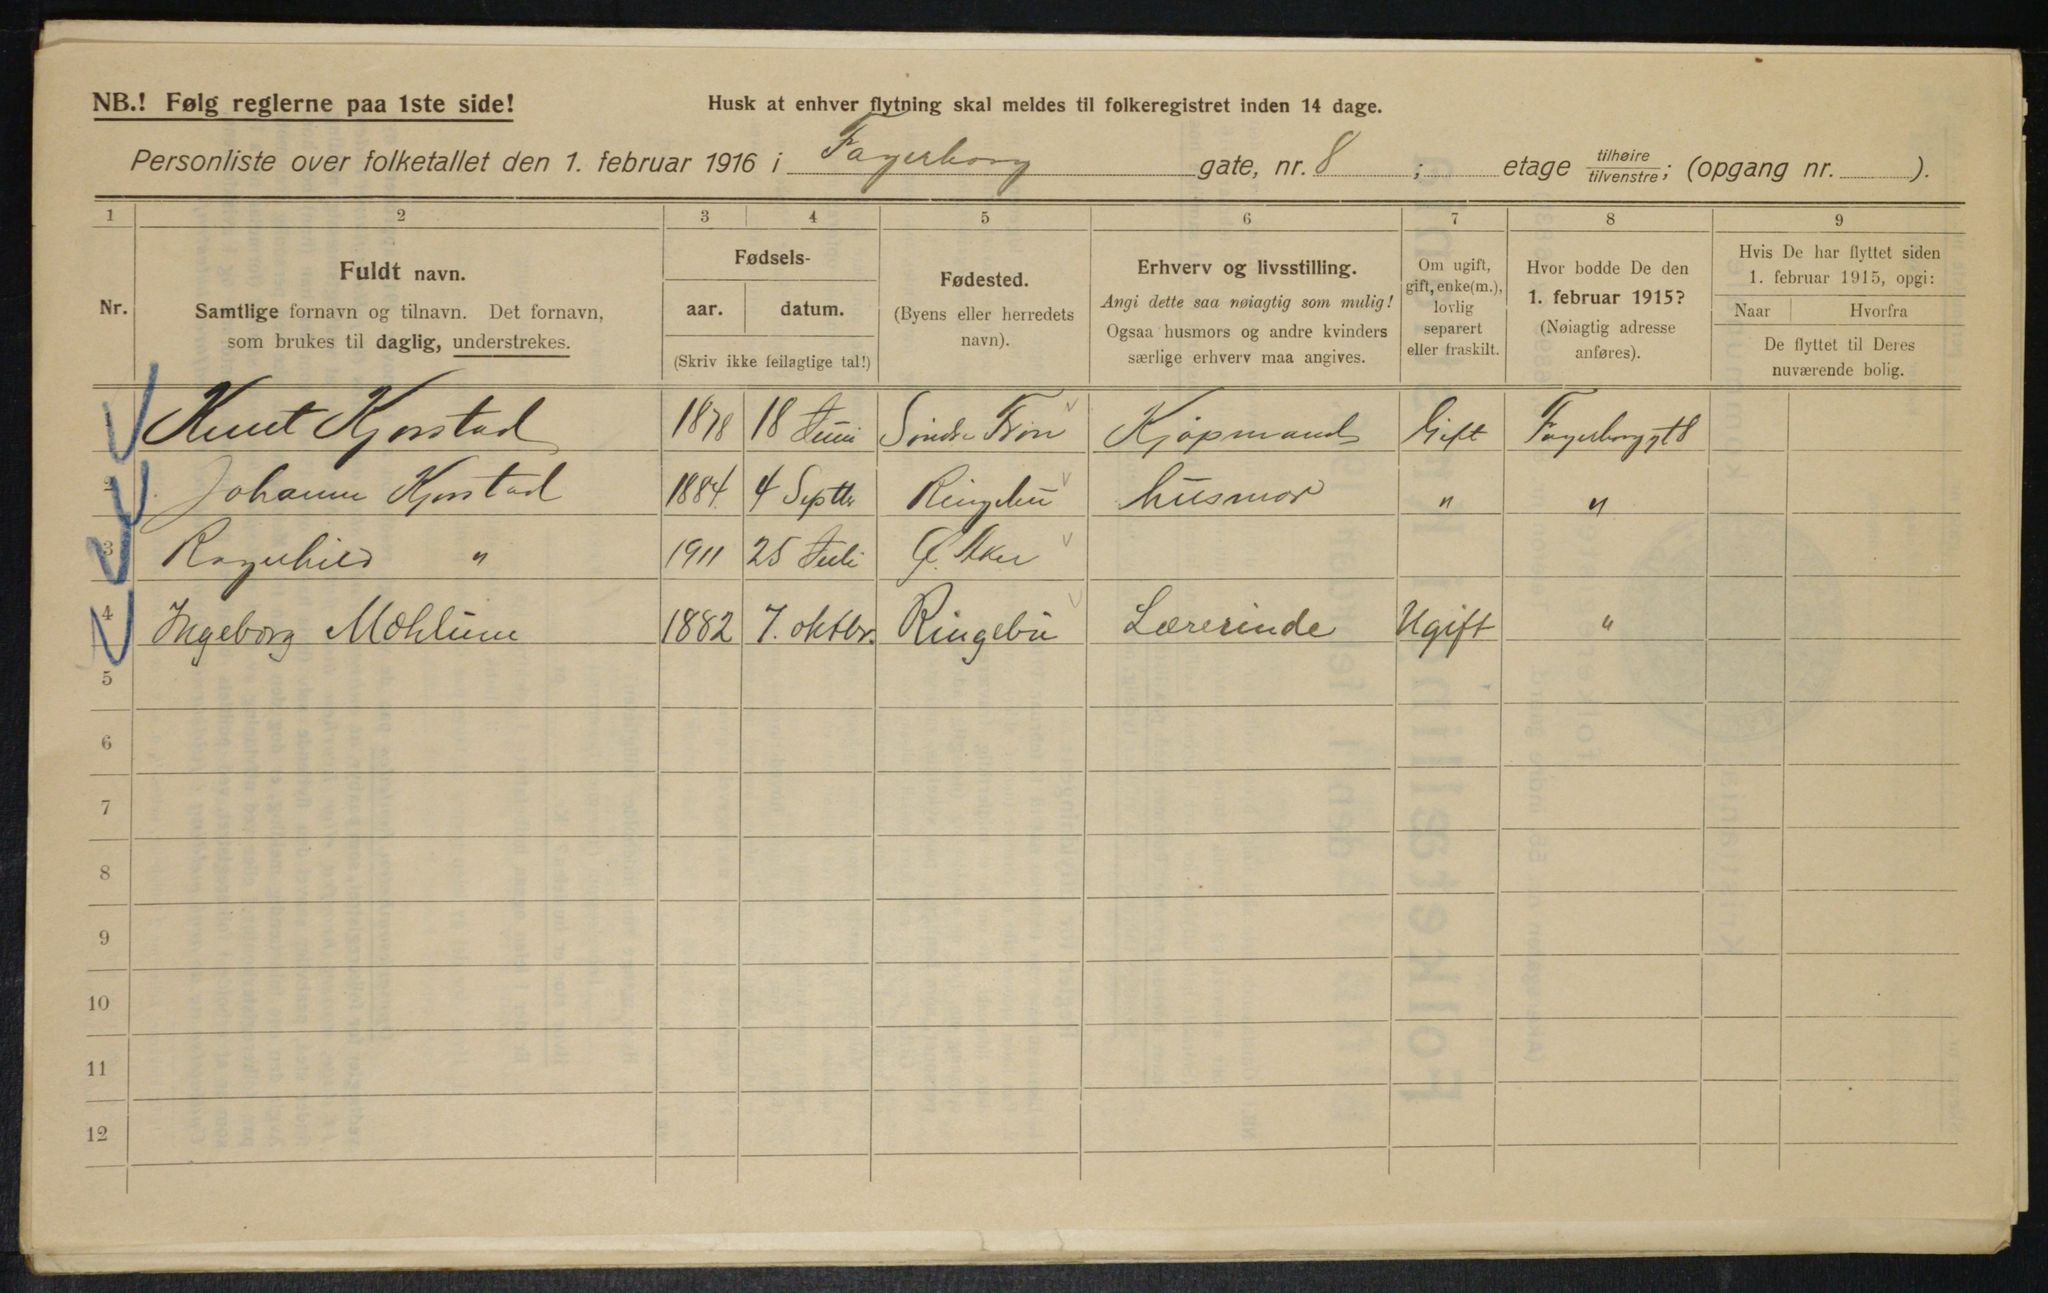 NB.! Følg reglerne paa 1ste side!
Husk at enhver flytning skal meldes til folkeregistret inden 14 dage.
Personliste over folketallet den 1. februar 1916 i Fagerborg gate, nr. 8 ; etage tilhøire tilvenstre; (opgang nr. ).
1 2 3 4 5 6 7 8 9
Nr.
Fuldt navn.
Samtlige fornavn og tilnavn. Det fornavn,
som brukes til daglig, understrekes.
Fødsels-
aar. datum.
(Skriv ikke feilagtige tal!)
Fødested.
(Byens eller herredets
navn).
Erhverv og livsstilling.
Angi dette saa nøiagtig som mulig!
Ogsaa husmors og andre kvinders
særlige erhverv maa angives.
Om ugift,
gift, enke(m.),
lovlig
separert
eller fraskilt.
Hvor bodde De den
1. februar 1915?
(Nøiagtig adresse
anføres).
Hvis De har flyttet siden
1. februar 1915, opgi:
Naar Hvorfra
De flyttet til Deres
nuværende bolig.
Knut Kjorstad 1878 18 Juni Søndre Fron Kjøpmand Gift Fagerborggt 8
2 Johanne Kjorstad 1884. 4 Septbr Ringebu husmor " "
3 Ragnhild " 1911 25 Juli Ø. Aker
4 Ingeborg Mæhlum 1882 7. oktbr. Ringebu Lærerinde Ugift "
5
6
7
8
9
10
11
12